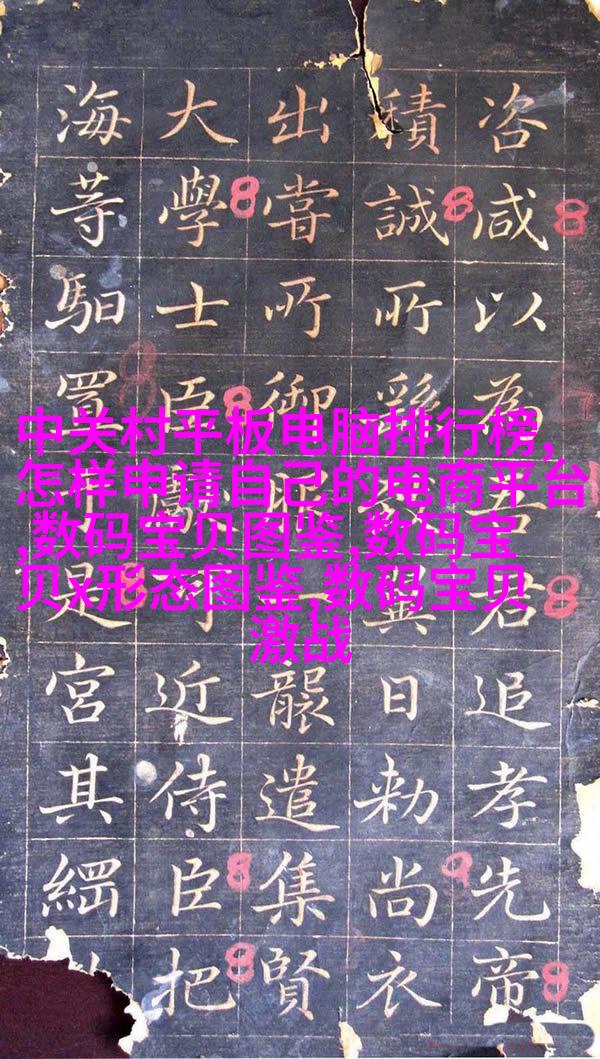 咨咸以為吾君追孝先帝
積誠所日勅尚衣
出嘗所御一襲遣集賢
大學士臣近侍臣把
海等馹置是宮其
8
8
8
8
8
8
8
9
8
9
中关村平板电脑排行榜,
怎样申请自己的电商平台
,数码宝贝图鉴,数码宝
贝x形态图鉴,数码宝贝
激战